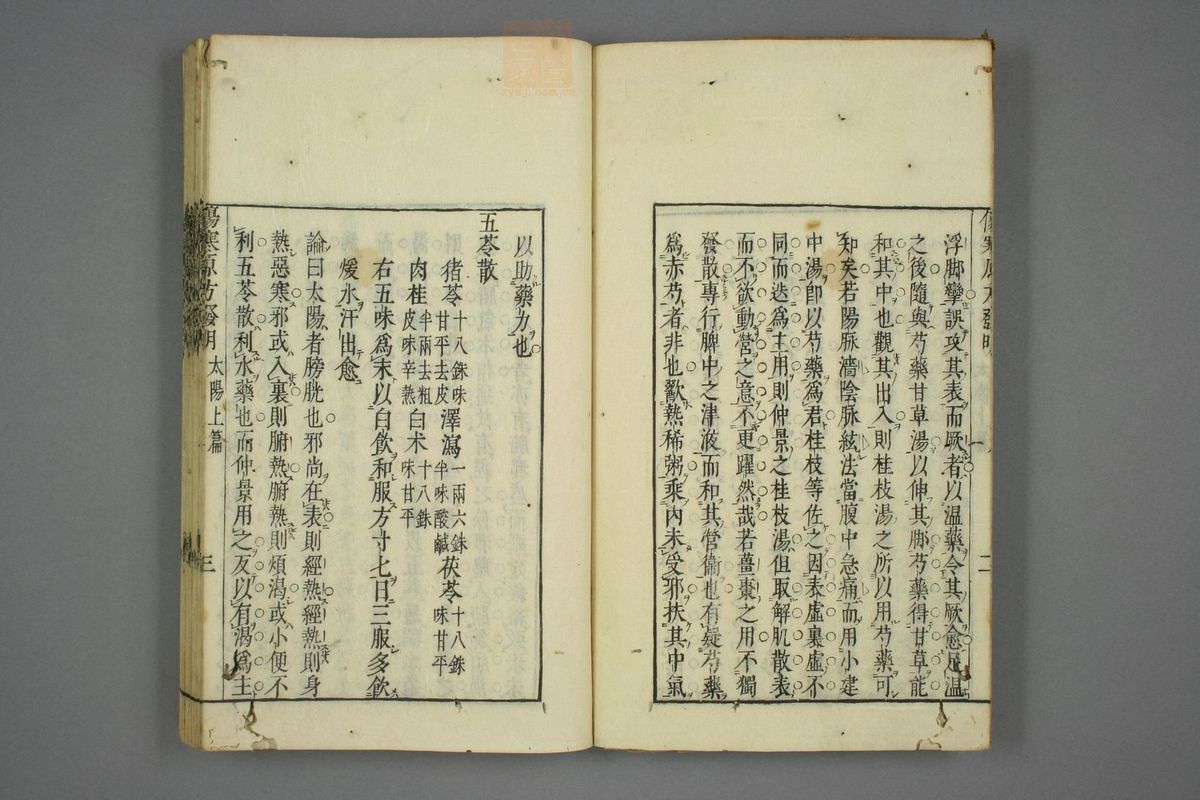 浮脚攣誤攻其表而厥者以温藥令其厥愈足温
之後隨與芍藥甘草湯以伸其脚芍藥得甘草能
和其中也觀其出入則桂枝湯之所以用芍藥可
知矣若陽脉濇陰脉絃法當腹中急痛而用小建
中湯卽以芍藥爲君桂枝等佐之因表虛裏虛不
同而迭爲主用則仲景之桂枝湯但取解肌散表
而不欲動營之意不更躍然哉若薑棗之用不獨
發散專行脾中之津液而和其營衞也有疑芍藥
爲赤芍者非也歠熱稀粥乘內未受邪扶其中氣
二
以助藥力也
五苓散
猪苓十八銖味甘平去皮 澤瀉一兩六銖半味酸鹹 茯苓十八銖味甘平
肉桂半兩去粗皮味辛熱 白术十八銖味甘平
右五味爲末以白飲和服方寸匕日三服多飲
煖水汗出愈
論曰太陽者膀胱也邪尚在表則經熱經熱則身
熱惡寒邪或入裏則腑熱腑熱則煩渴或小便不
利五苓散利水藥也而仲景用之反以有渴爲主
傷寒原方發明 太陽上篇 三